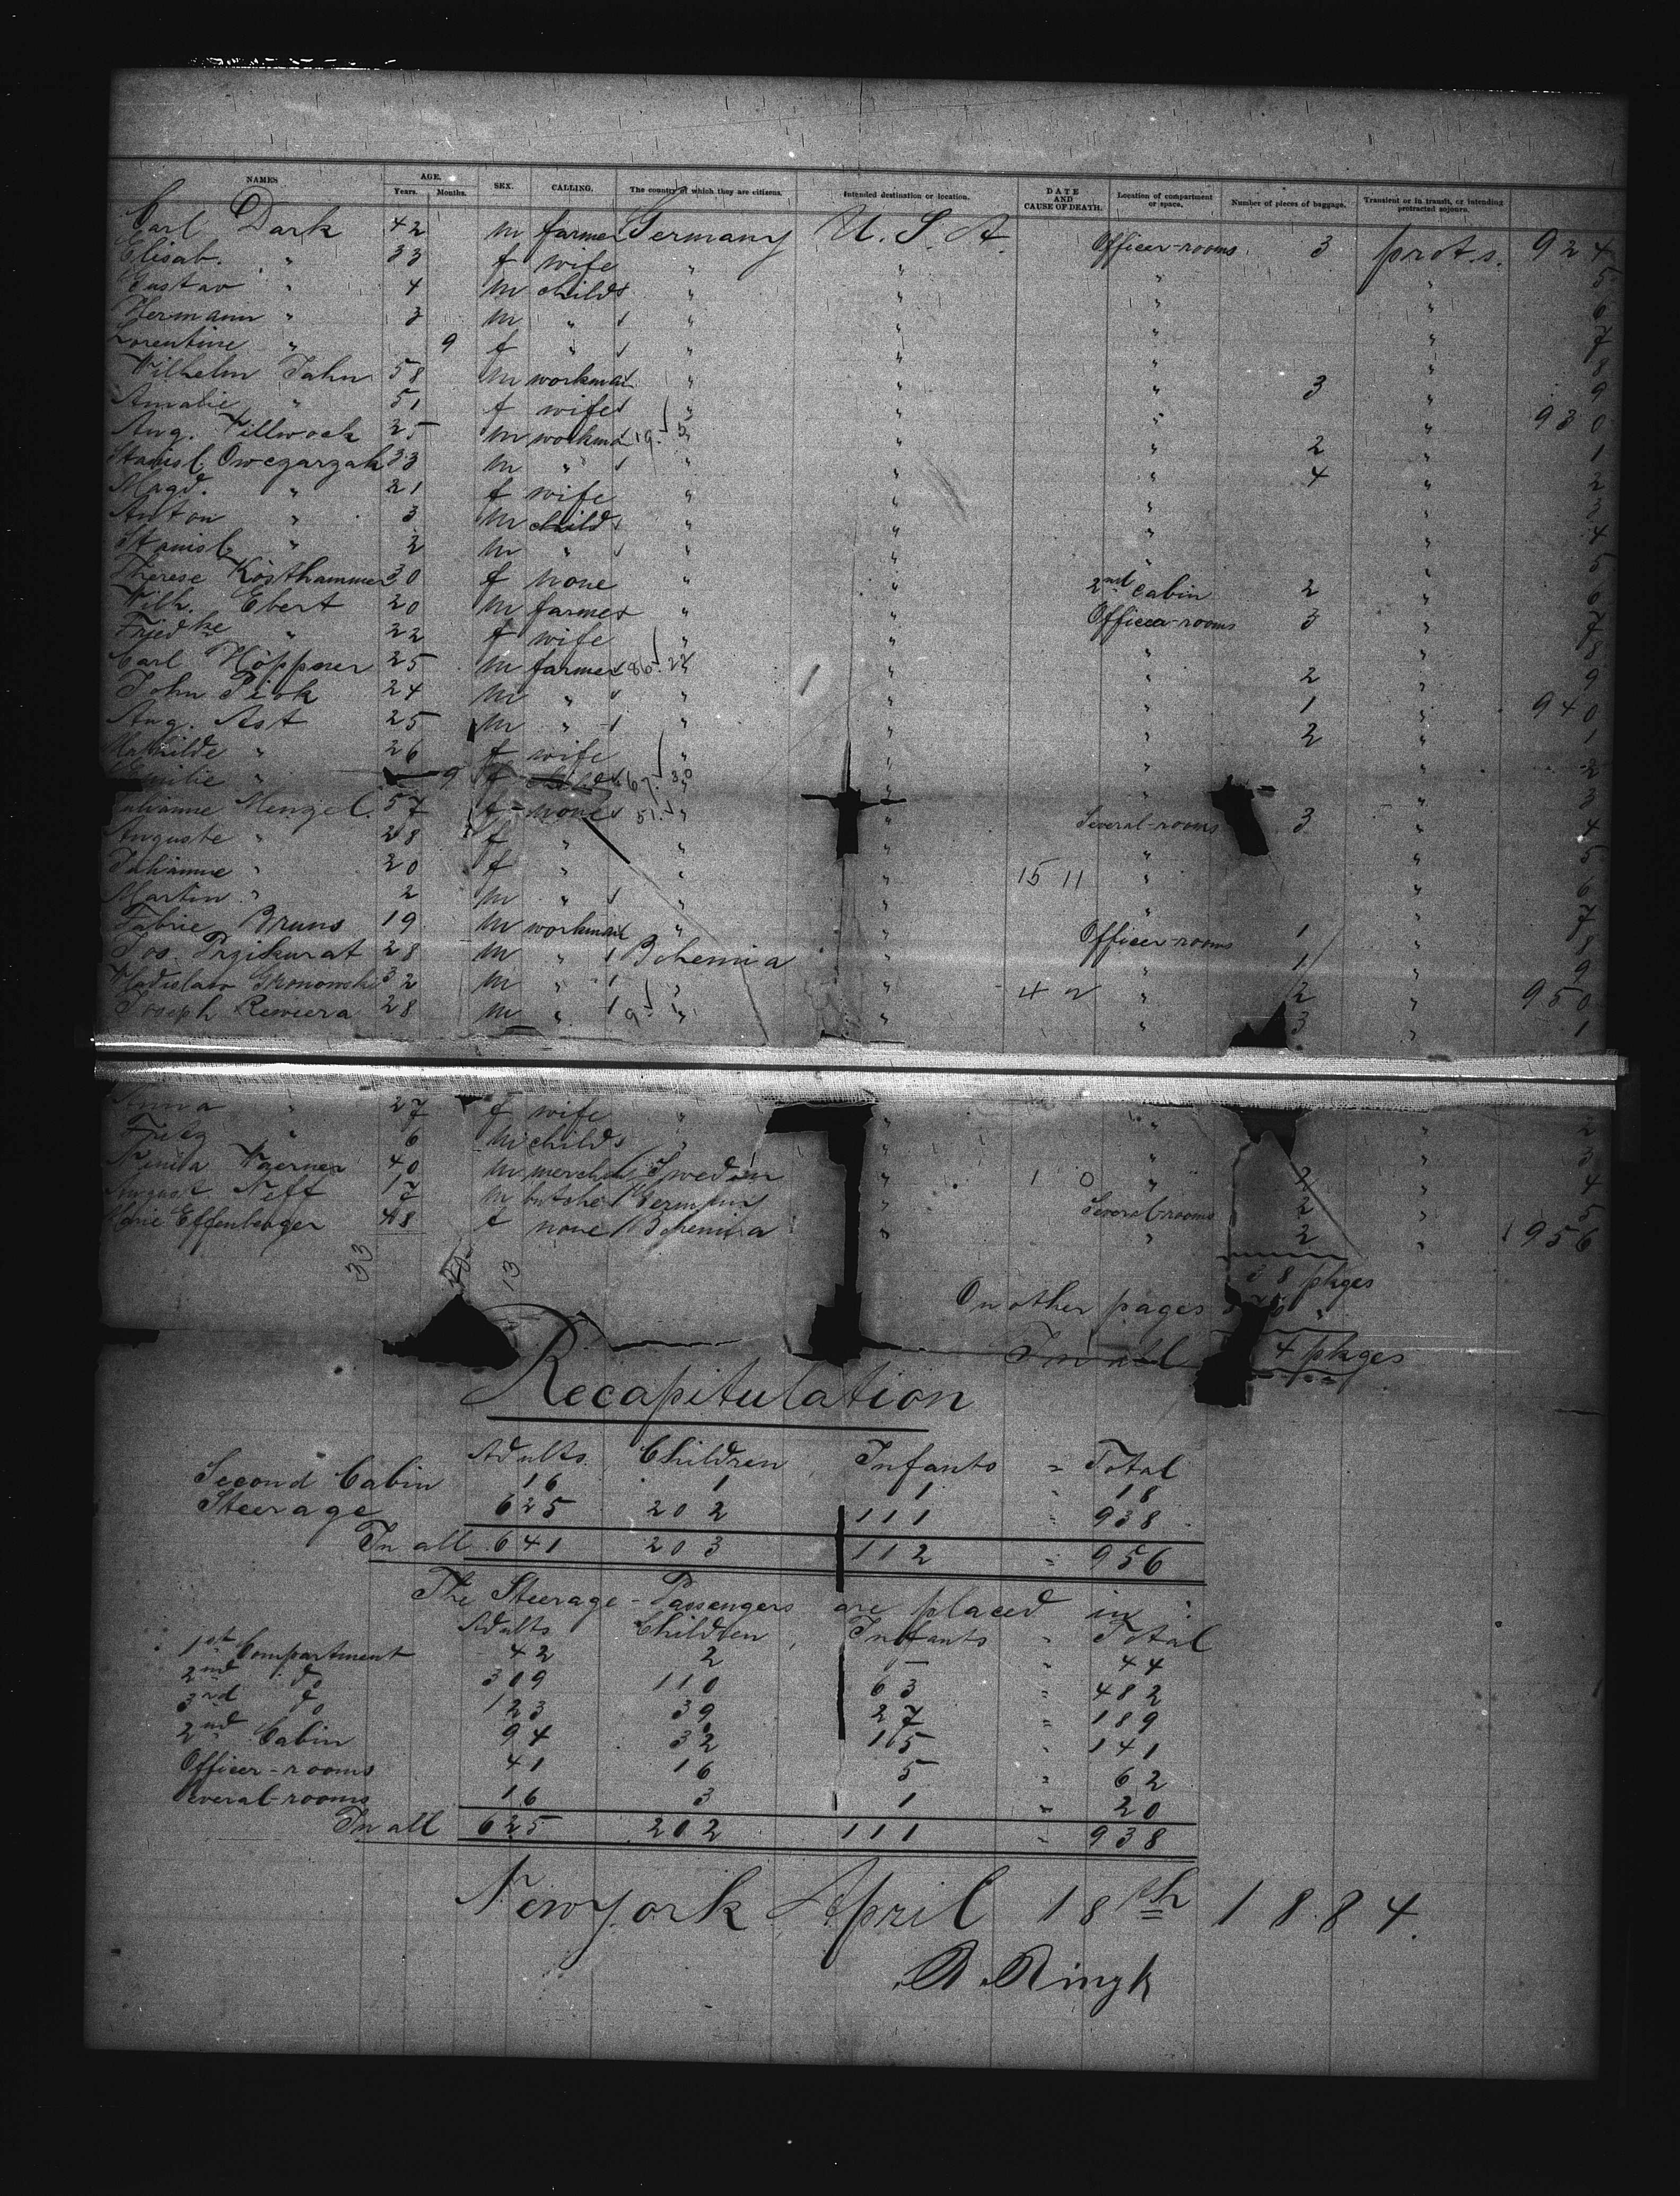 NAMES AGE. Years. Months. SEX. CALLING. The country of which they are citizens. Intended destination or location. DATE AND CAUSE OF DEATH. Location of compartment or space. Number of pieces of baggage. Transient or in transit, or intending protracted sojourn.
Carl Dark 42 m farmer Germany U.S.A Officer-rooms 3 prot.s. 924
Elisab. " 33 f wife " " " " 5
Gustav " 4 m child " " " " 6
Hermann " 3 m " " " " " 7
" 9 f " " " " " 8
Wilhelm Jahn 58 m workman " " " 3 " 9
Amalie " 51 f wife " " " " 930
Aug. Villwock 25 m workman " " " 2 " 1
Stanisl. Owczarzak 33 m " " " " 4 " 2
Magd. " 21 f wife " " " " 3
Anton " 3 m child " " " " 4
Stanisl. " 2 m " " " " " 5
Therese Kösthammer 30 f none " " 2nd Cabin 2 " 6
Wilh. Ebert 20 m farmer " " Officer-rooms 3 " 7
Friedke " 22 f wife " " " " 8
Carl Höppner 25 m farmer " " " 2 " 9
John Piok 24 m " " " " 1 " 940
Aug. Ast 25 m " " " " 2 " 1
Mathilde " 26 f wife " " " " 2
Emilie " 9 f " " " " 3
Julianne Menzel. 57 f none " " Several-rooms 3 " 4
Auguste " 28 f " " " " " 5
Julianne " 20 f " " " 15 11 " " 6
Martin " 2 m " " " " " 7
Bruns 19 m workman " " Officer-rooms 1 " 8
Jos. Przikurat 28 m " Bohemia " " 1 " 9
Vladislaw Gronowski 32 m " " " " 2 " 950
Joseph Rewiera 28 m " " " " 3 " 1
Anna " 27 f wife " " " " 2
Fritz " 6 m child " " " " 3
Waerner 40 m merch. Sweden " 1 0 " 2 " 4
August Neff 17 m butcher Germany " Several-rooms 2 " 5
Marie Effenberger 48 f none Bohemia " " 2 " 956
33 13
38 pkges
On other pages "
In all 4 pkges
Recapitulation
Adults Children Infants = Total
Second Cabin 16 1 1 " 18
Steerage 625 202 111 " 938
In all 641 203 112 = 956
The Steerage-Passengers are placed in:
Adults Children, Infants = Total
1st Compartment 42 2 — " 44
2nd do 309 110 63 = 482
3rd do 123 39 27 = 189
2nd Cabin 94 32 15 " 141
Officer-rooms 41 16 5 = 62
Several-rooms 16 3 1 = 20
In all 625 202 111 = 938
Newyork April 18th 1884.
B. Ringk